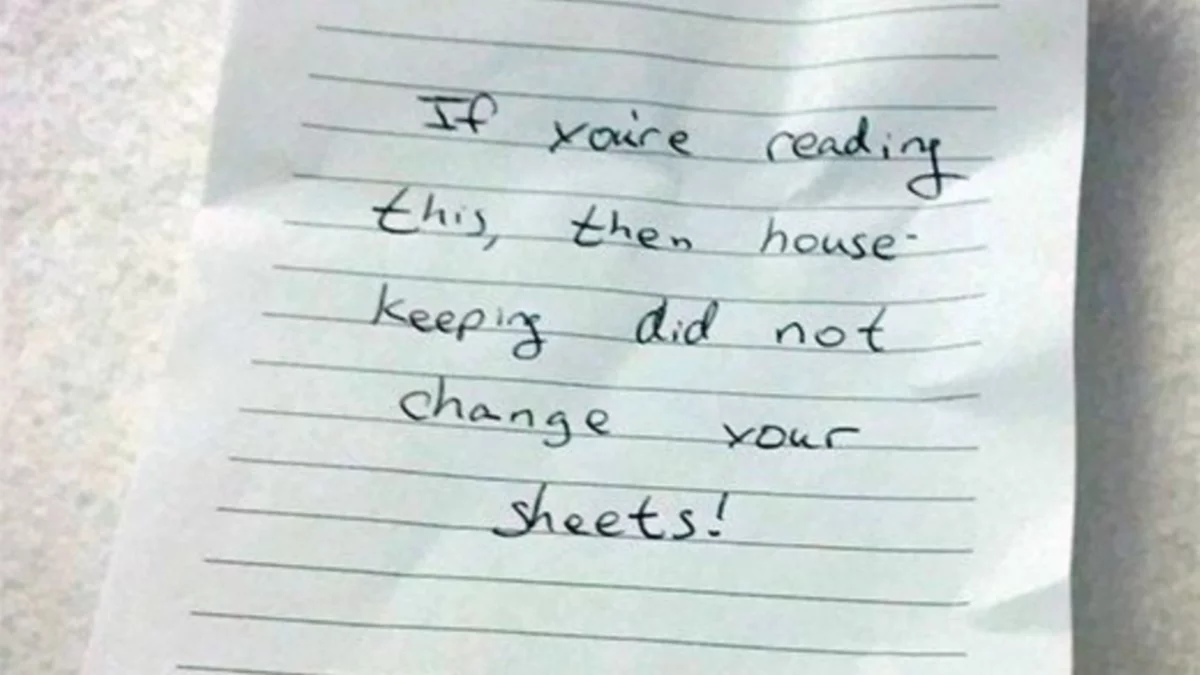 If you're reading
this, then house-
keeping did not
change your
sheets!